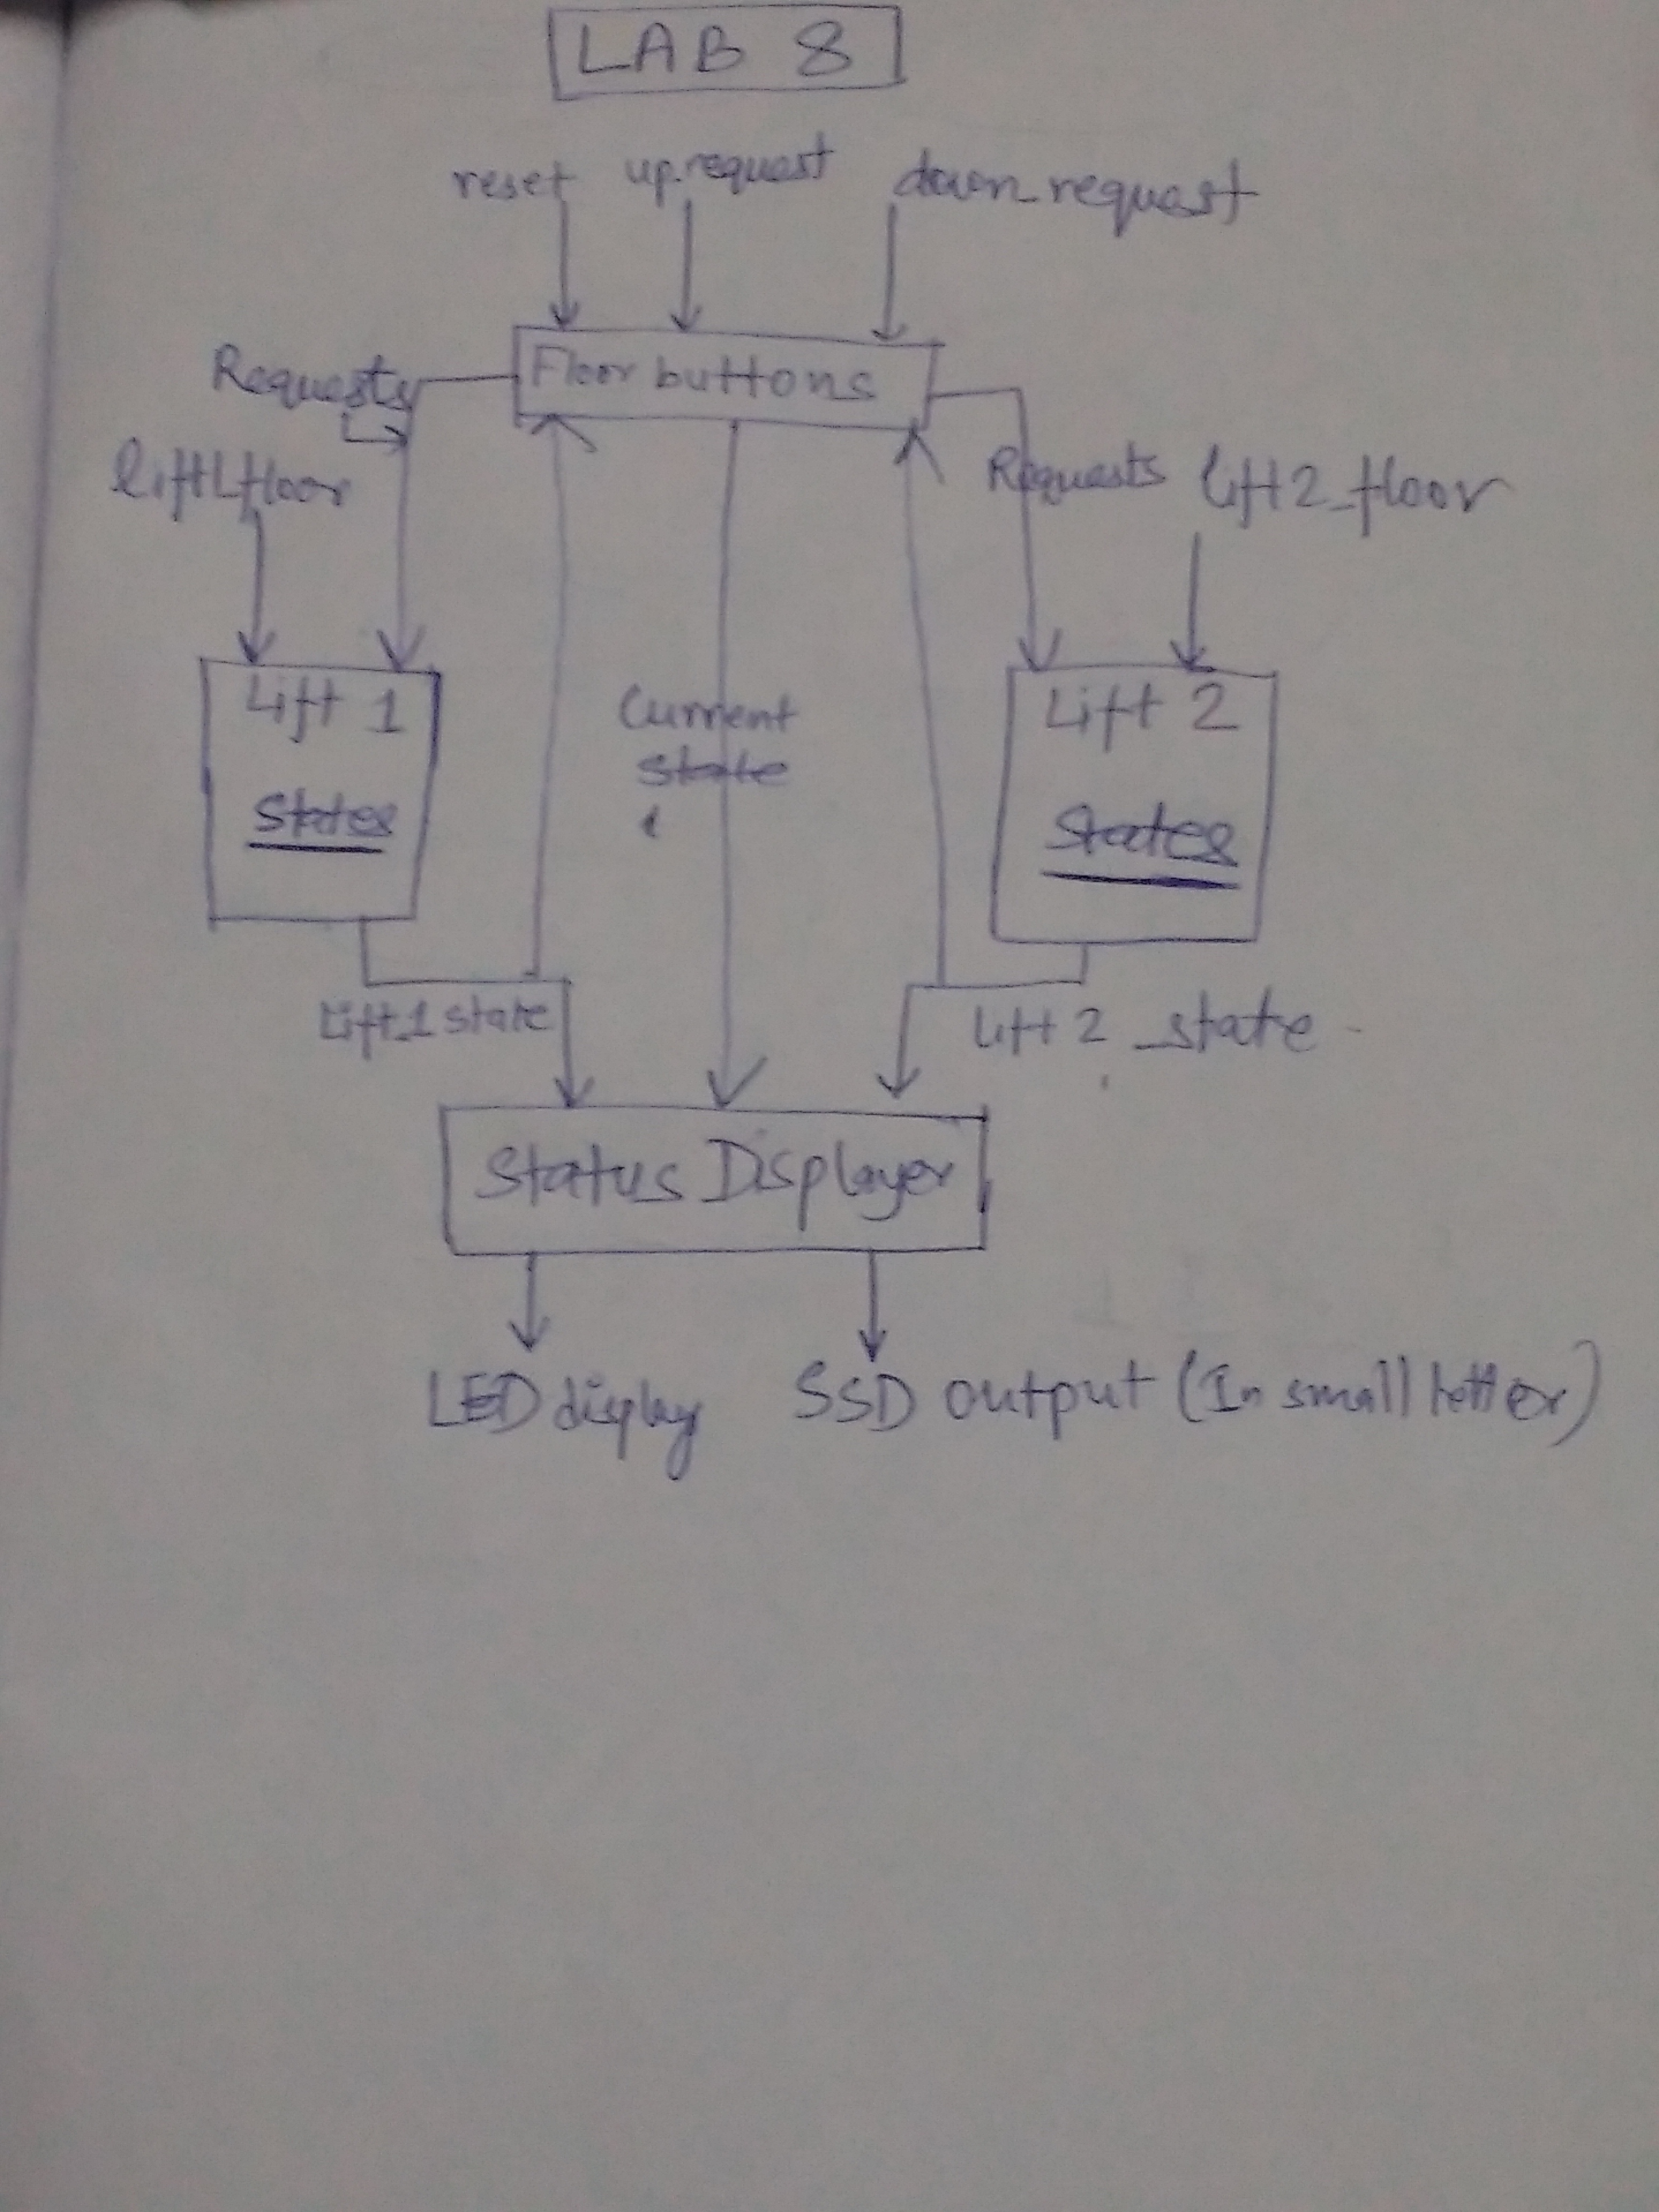 LAB 8
reset up_request down_request
Floor buttons
Requests
lift1_floor
Requests lift2_floor
Lift 1
States
Current
state
Lift 2
States
Lift_1 state
lift 2 _state
Status Displayer
LED display SSD output (In small letter)